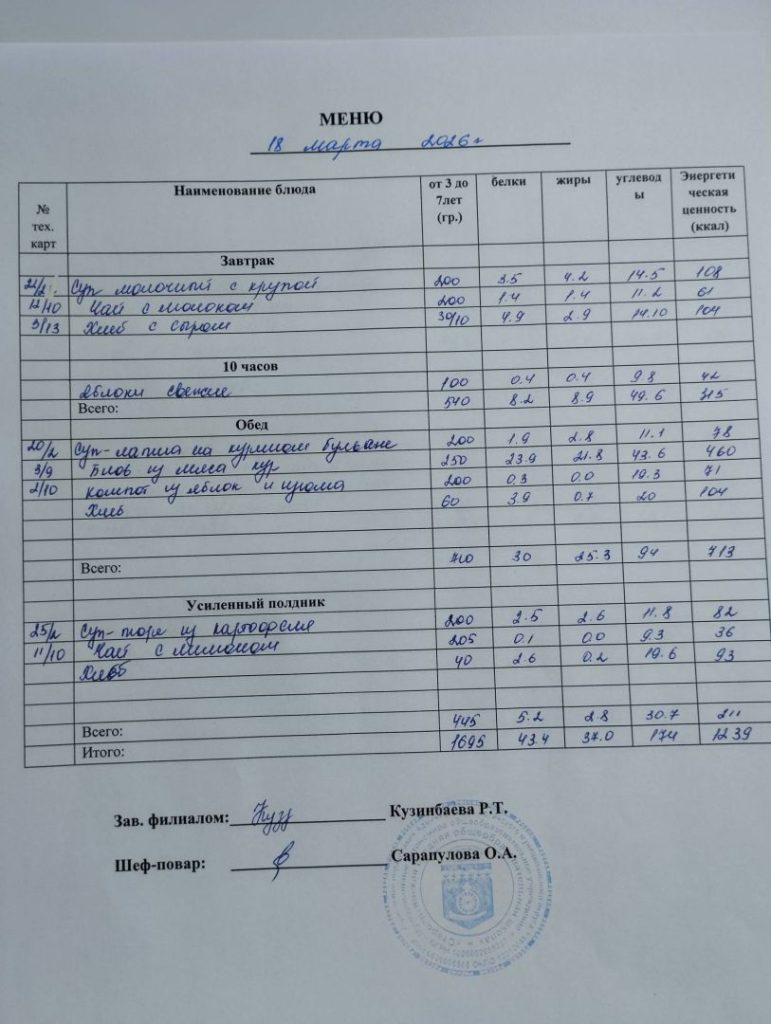 МЕНЮ
18 марта 2026г
№ тех. карт Наименование блюда от 3 до 7лет (гр.) белки жиры углеводы Энергетическая ценность (ккал)
Завтрак
Суп молочный с крупой 200 3.5 4.2 14.5 108
12/10 Чай с молоком 200 1.4 1.4 11.2 61
3/13 Хлеб с сыром 30/10 4.9 2.9 14.10 104
10 часов
Яблоки свежие 100 0.4 0.4 9.8 42
Всего: 540 8.2 8.9 49.6 315
Обед
20/2 Суп-лапша на курином бульоне 200 1.9 2.8 11.1 78
3/9 из мяса кур 250 23.9 21.8 43.6 460
2/10 компот из яблок и изюма 200 0.3 0.0 19.3 71
Хлеб 60 3.9 0.7 20 104
Всего: 710 30 25.3 94 713
Усиленный полдник
25/2 Суп-пюре из картофеля 200 2.5 2.6 11.8 82
11/10 Чай с лимоном 205 0.1 0.0 9.3 36
Хлеб 40 2.6 0.2 19.6 93
Всего: 445 5.2 2.8 30.7 211
Итого: 1695 43.4 37.0 174 1239
Зав. филиалом: Кузинбаева Р.Т.
Шеф-повар: Сарапулова О.А.